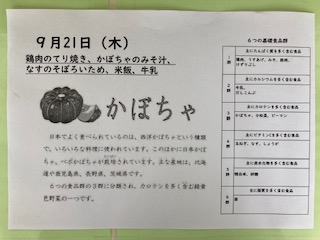 9月21日(木)
鶏肉のてり焼き、かぼちゃのみそ汁、
なすのそぼろいため、米飯、牛乳
かぼちゃ
日本でよく食べられているのは、西洋かぼちゃという種類
で、いろいろな料理に使われています。このほかに日本かぼ
ちゃ、ペポかぼちゃが栽培されています。主な産地は、北海
道や鹿児島県、長野県、茨城県です。
6つの食品群の3群に分類され、カロテンを多く含む緑黄
色野菜の一つです。
6つの基礎食品群
1群
主にたんぱく質を多く含む食品
鶏肉、
2群
主にカルシウムを多く含む食品
牛乳、
だしこんぶ
3群
主にカロテンを多く含む食品
かぼちゃ、小松菜、ピーマン
4群
主にビタミンCを多く含む食品
玉ねぎ、なす、しょうが
5群
主に炭水化物を多く含む食品
6群
主に脂質を多く含む食品
油